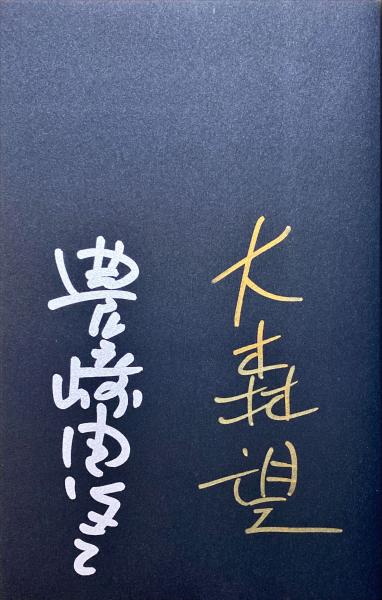 大森望
豊崎由美